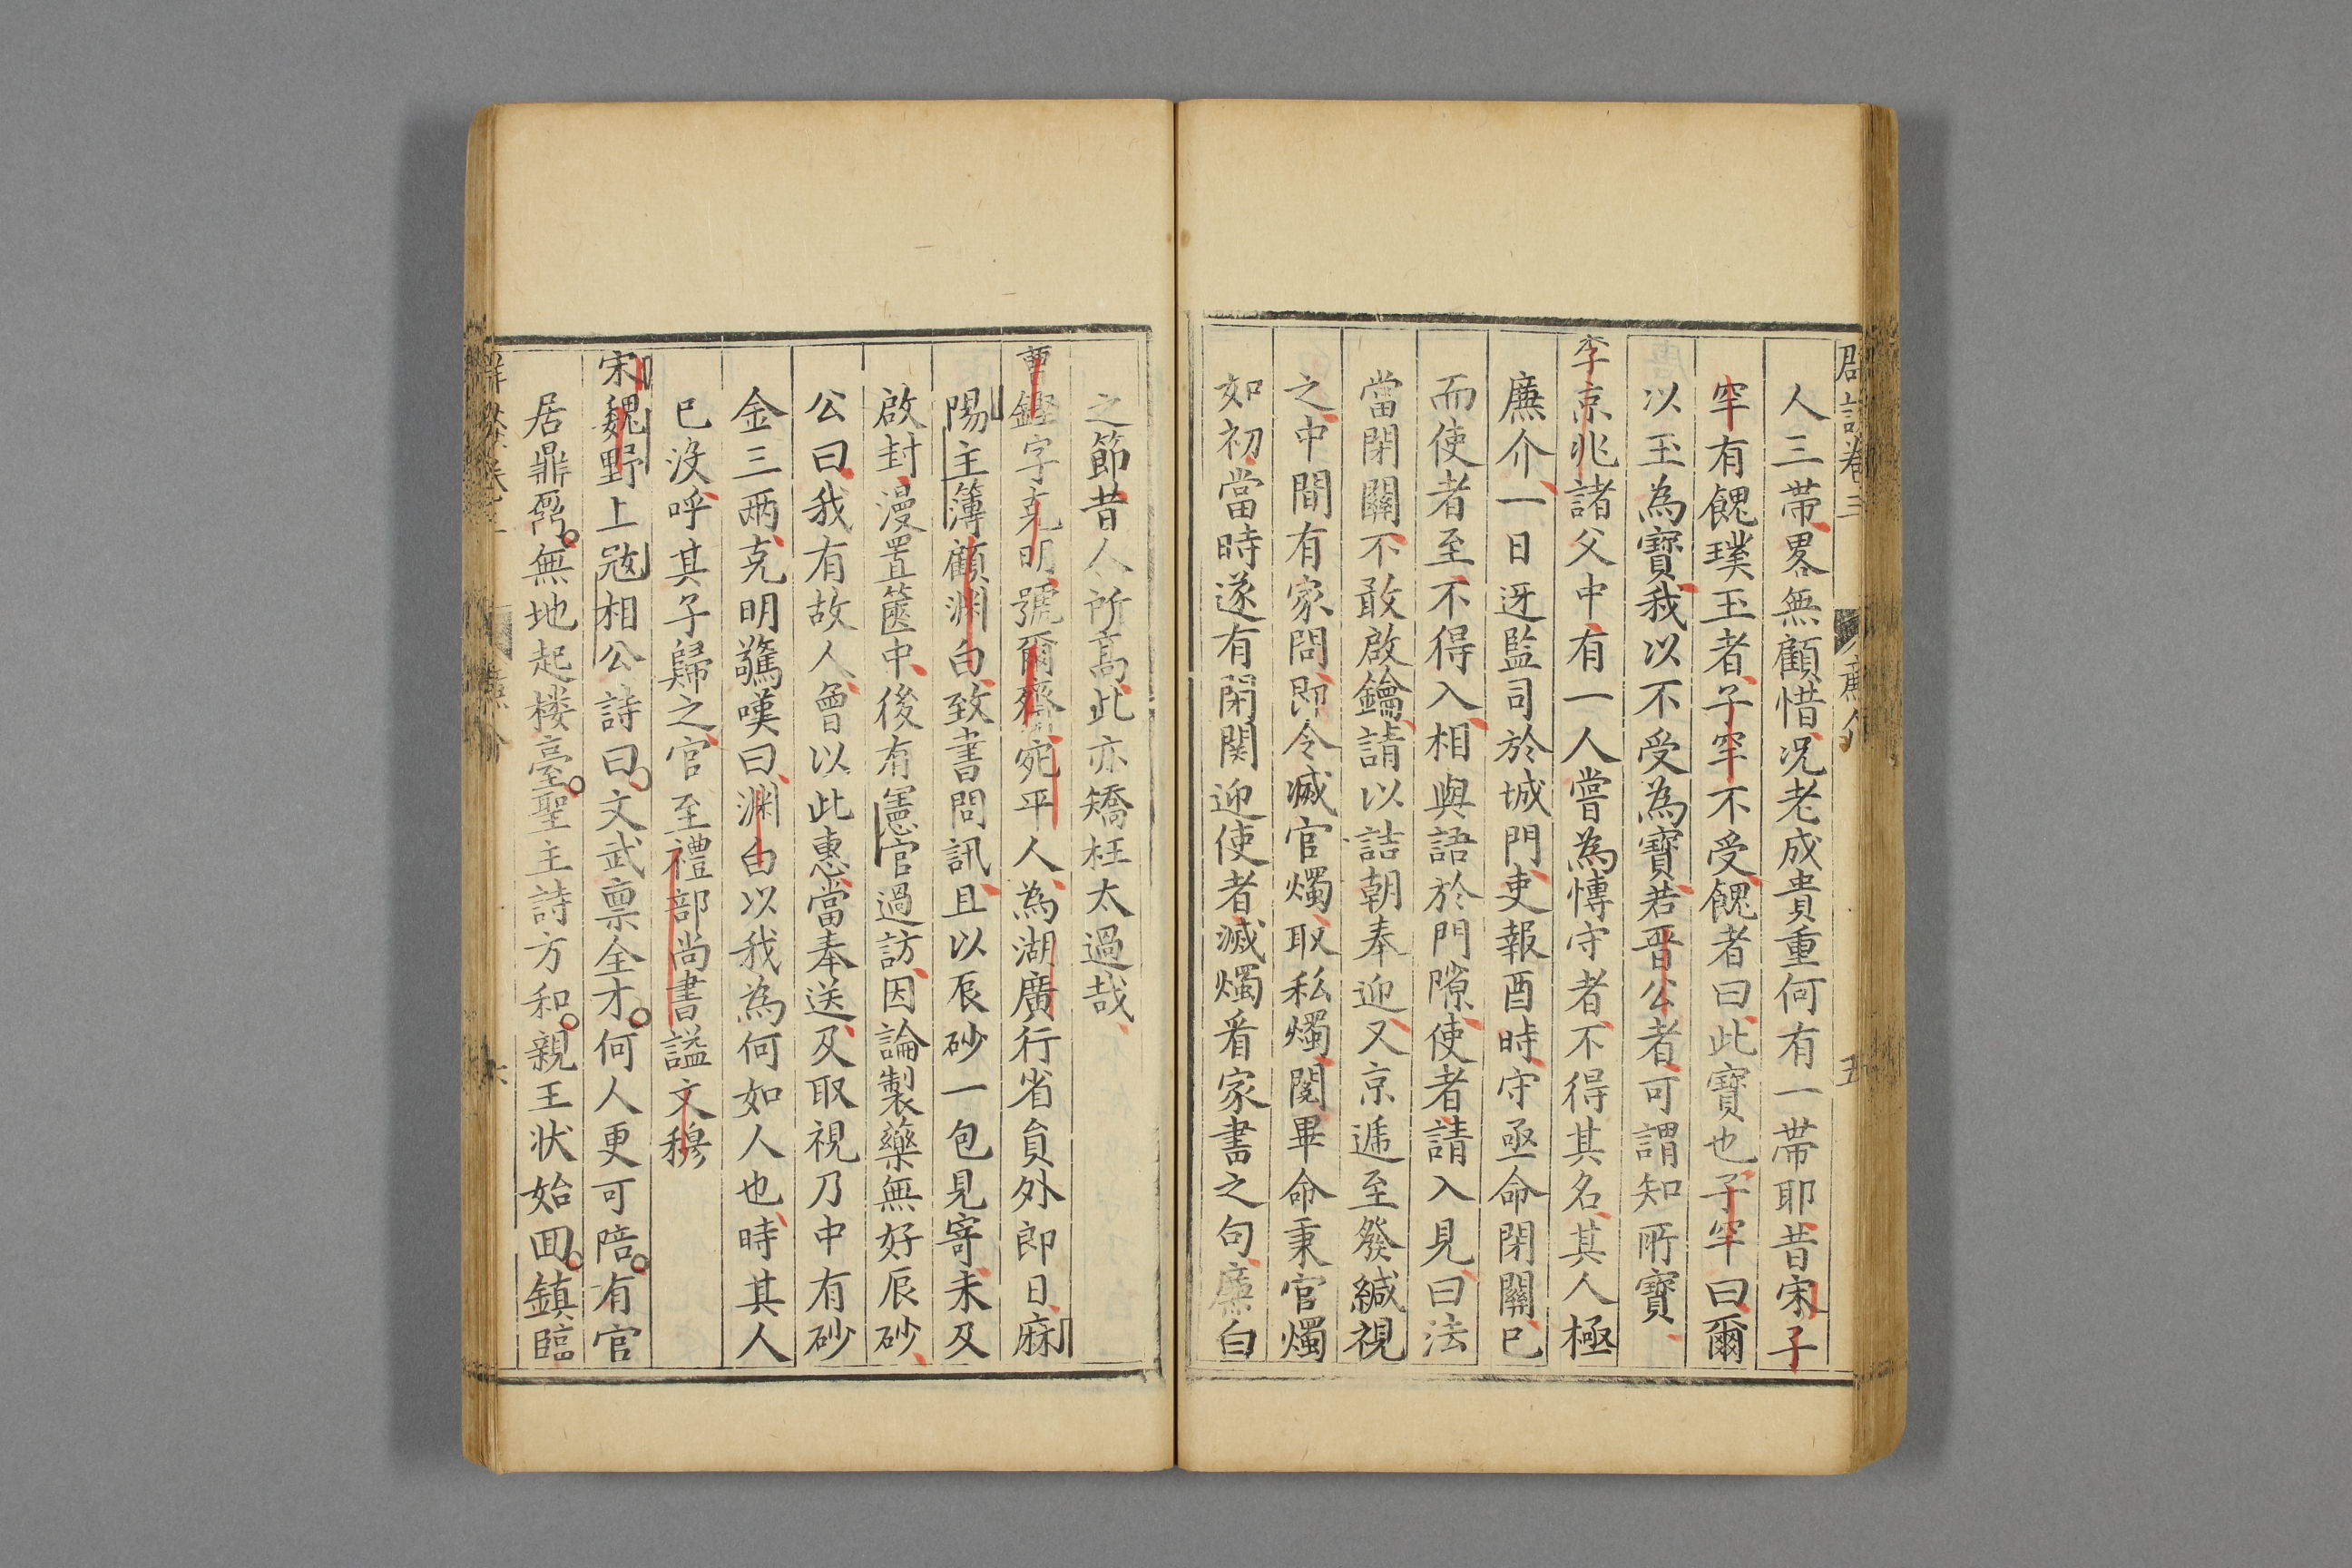 人三帶畧無顧惜况老成貴重何有一帶耶昔宋子
罕有餽璞玉者子罕不受餽者曰此寶也子罕曰爾
以玉為寶我以不受為寶若晋公者可謂知所寶
李京兆諸父中有一人嘗為慱守者不得其名其人極
廉介一日迓監司於城門吏報酉時守亟命閉關已
而使者至不得入相與語於門隙使者請入見曰法
當閉關不敢啟鑰請以詰朝奉迎又京逓至發緘視
之中間有家問即令滅官燭取私燭閱畢命秉官燭
如初當時遂有閉関迎使者滅燭看家書之句廉白
之節昔人所高此亦矯枉太過哉
曹鑑字克明號爾齋宛平人為湖廣行省負外郎日麻
陽主簿顧渊白致書問訊且以辰砂一包見寄未及
啟封漫置篋中後有憲官過訪因論製藥無好辰砂
公曰我有故人曾以此惠當奉送及取視乃中有砂
金三兩克明驚嘆曰渊白以我為何如人也時其人
已沒呼其子歸之官至禮部尚書謚文穆
宋魏野上冦相公詩曰文武禀全才何人更可陪有官
居鼎鼐無地起楼臺聖主詩方和親王状始囬鎮臨